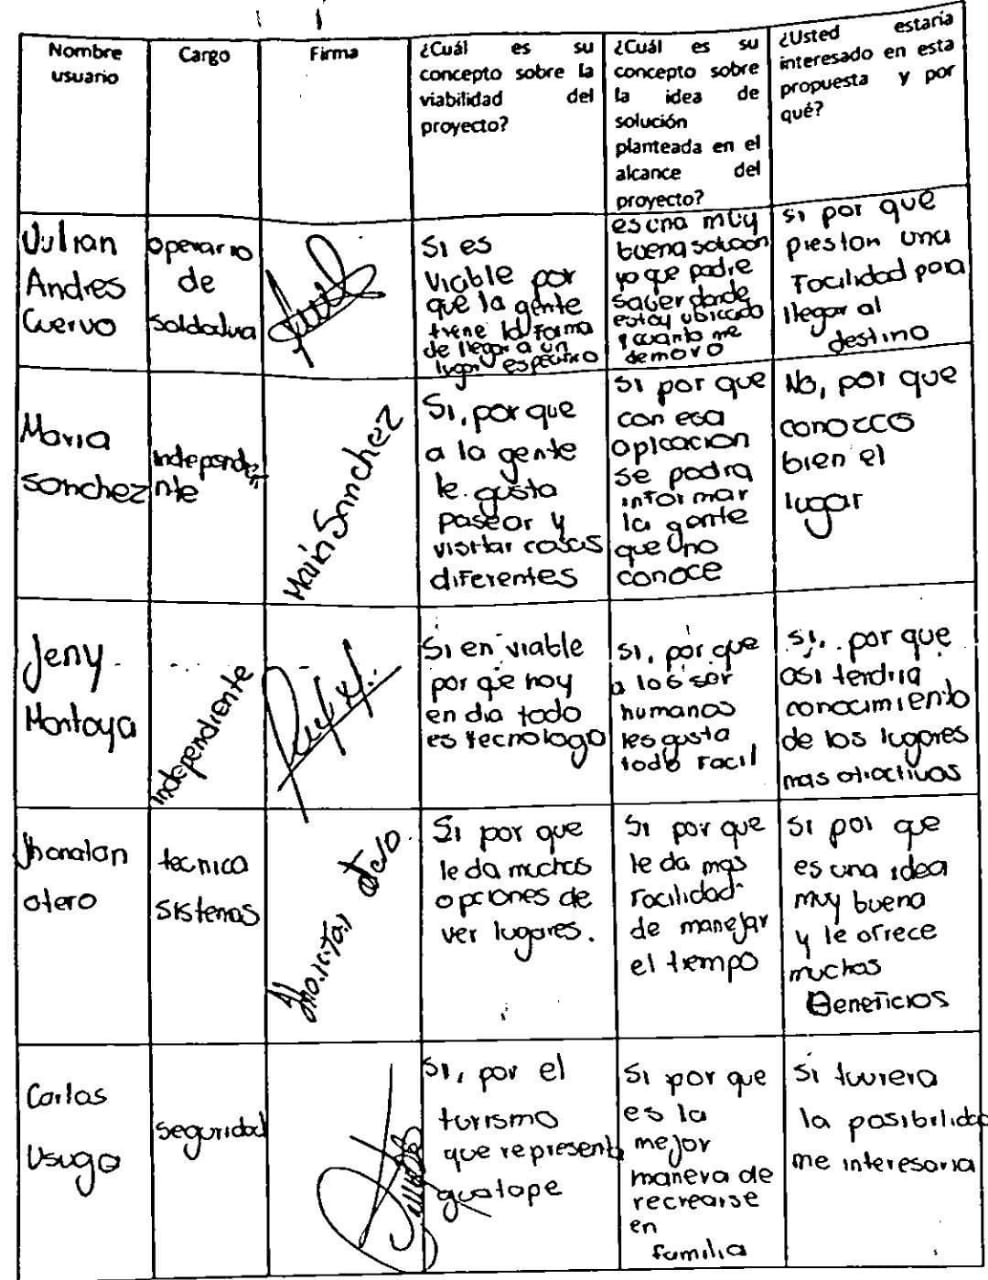 Nombre usuario
Cargo
Firma
¿Cuál es su
concepto sobre la
viabilidad del
proyecto?
¿Cuál es su
concepto sobre
la idea de
solución
planteada en el
alcance del
proyecto?
¿Usted estaría
interesado en esta
propuesta y por
qué?
Julian
Andres
Cuervo
operario
de
Soldadura
Si es
viable por
que la gente
tiene la forma
de llegar a un
lugar especifico
es una muy
buena solucion
ya que podre
saber donde
estoy ubicado
y cuanto me
demoro
si por que
prestan una
Facilidad para
llegar al
destino
Maria
Sanchez
Independie
nte
Maria Sanchez
Si, por que
a la gente
le gusta
pasear y
visitar cosas
diferentes
si por que
con esa
aplicacion
se podra
informar
la gente
que uno
conoce
No, por que
conozco
bien el
lugar
Jeny
Montoya
Independiente
Si en viable
por qe hoy
en dia todo
es tecnologo
si, por que
a los ser
humanos
les gusta
todo facil
si, por que
asi tendria
conocimiento
de los lugares
mas atractivos
Jhonatan
otero
tecnico
sistemas
Si por que
le da muchas
opciones de
ver lugares.
Si por que
le da mas
facilidad
de manejar
el tiempo
si por que
es una idea
muy buena
y le ofrece
muchos
Beneficios
Carlos
Usuga
Seguridad
Si, por el
turismo
que representa
guatape
Si por que
es la
mejor
manera de
recrearse
en
familia
Si tuviera
la posibilidad
me interesaria